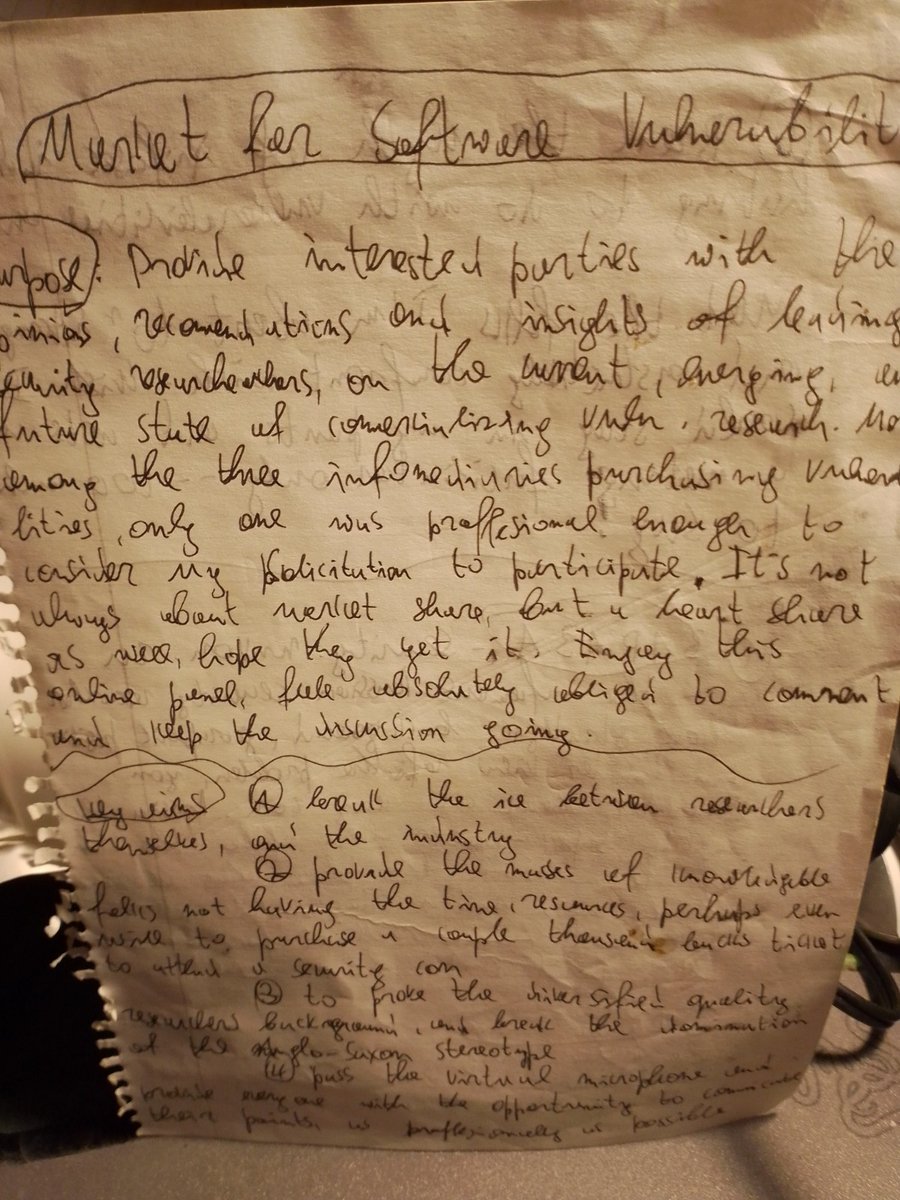 Market for Software Vulnerabilit
urpose: Provide interested parties with the
pinions, recomendations and insights of leading
ecurity researchers, on the current, emerging, an
future state of comercializing vuln. research. No
among the three infomediaries purchasing vulnera
lities, only one was proffesional enough to
consider my solicitation to participate. It's not
always about market share, but a heart share
as well, hope they get it. Enjoy this
online panel, fell absolutely obliged to comment
and keep the discussion going.
Key aims ① break the ice between researchers
themselves, and the industry
② provide the masses of knowledgable
folks not having the time, resources, perhaps even
to purchase a couple thousand bucks ticket
to attend a security con
③ to prove the diversified quality
researchers background, and break the domination
of the Anglo-Saxon stereotype
(4) pass the virtual microphone and
provide everyone with the opportunity to comunicate
their points, as proffesionally as possible